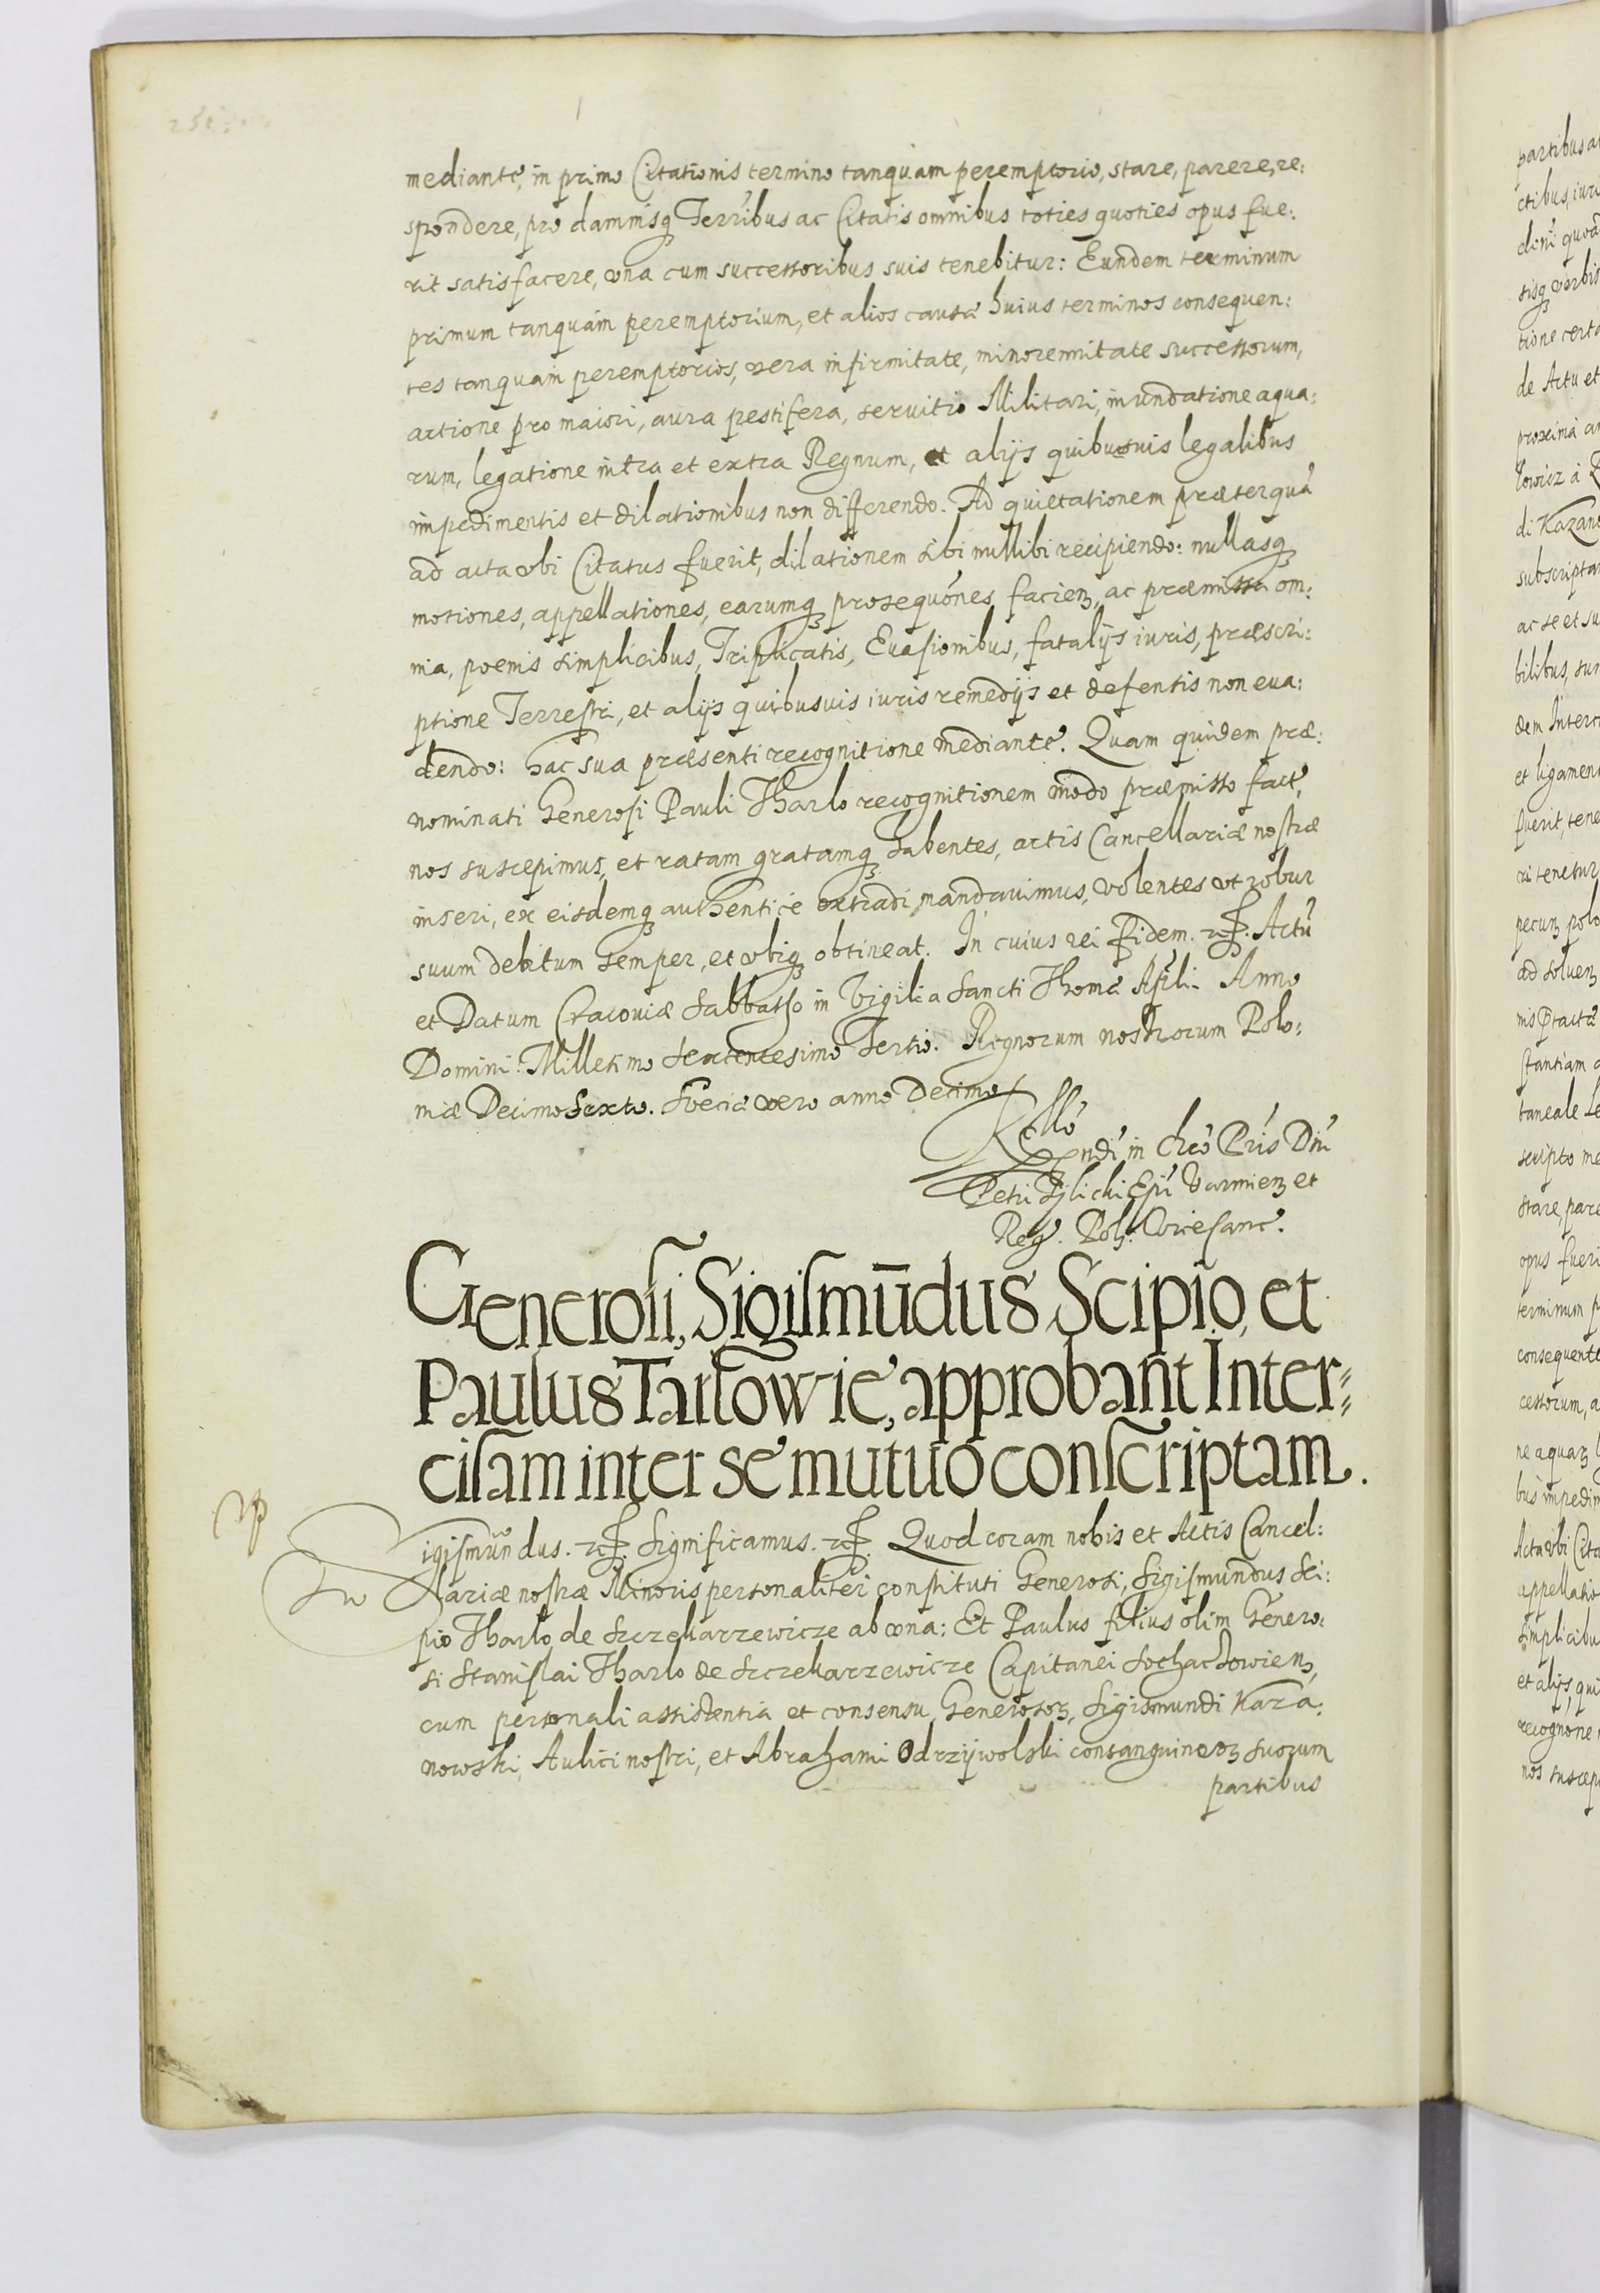 mediante, in primo Citationis termino tanquam peremptorio, stare, parere, re:
spondere, pro damnisq3 Terribus ac Citatis omnibus toties quoties opus fue:
rit satisfacere, una cum successoribus suis tenebitur: Eundem terminum
primum tanquam peremptorium, et alios causæ huius terminos consequen:
tes tanquam peremptorios, vera infirmitate, minorennitate successorum,
actione pro maiori, aura pestifera, servitio Militari, inundatione aqua:
rum, legatione intra et extra Regnum, et alijs quibusvis legalibus
impedimentis et dilationibus non differendo. Ad quietationem præterquā
ad acta ubi Citatus fuerit, dilationem sibi nullibi recipiendo: nullasq3
motiones, appellationes, earumq3 prosequōnes facien3, ac præmissa om:
nia, pœnis simplicibus, Triplicatis, Evasionibus, fatalijs iuris, præscri:
ptione Terrestri, et alijs quibusvis iuris remedijs et defensis non eva:
dendo: hac sua præsenti recognitione mediante. Quam quidem præ:
nominati Generosi Pauli Tharlo recognitionem modo præmisso fact'
nos suscepimus, et ratam gratamq3 habentes, actis Cancellariæ nostræ
inseri, ex eisdemq3 authentice extradi mandavimus, volentes ut robur
suum debitum semper, et ubiq3 obtineat. In cuius rei fidem. etc. Actū
et Datum Cracoviæ Sabbatho in Vigilia Sancti Thomæ Apli. Anno
Domini: Millesimo Sexcentesimo Tertio. Regnorum nostrorum Polo:
niæ Decimo Sexto. Sveciæ vero anno Decimo
Rello
Rndi in Chro Pris Dni
Petri Tylicki Epi Varmien3 et
Reg. Pol. Vicecanc.
Generosi, Sigismūdus Scipio, et
Paulus Tarłowie, approbant Inter=
cisam inter se mutuo conscriptam.
Sigismundus. etc. Significamus. etc. Quod coram nobis et Actis Cancel:
lariæ nostræ Minoris personaliter constituti Generosi, Sigismundus Sci:
pio Tharlo de Szczekarzewicze ab una: Et Paulus filius olim Genero:
si Stanislai Tharlo de Szczekarzewicze Capitanei Sochaczowien3,
cum personali assistentia et consensu Generosor3, Sigismundi Kaza:
nowski, Aulici nostri, et Abrahami Odrzywolski consanguineor3 suorum
partibus